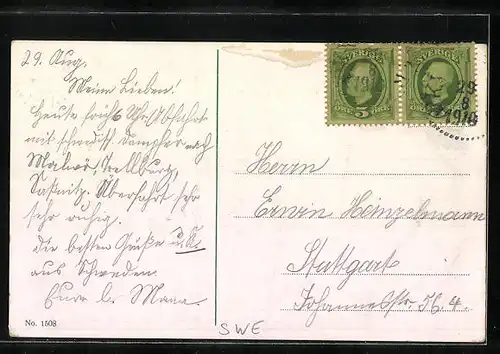 29. Aug.
Meine Lieben!
Heute früh 6 Uhr Abfahrt
mit schwedisch. Dampfer nach
Malmö, Trelleburg,
Saßnitz. Überfahrt sehr
sehr ruhig.
Die besten Grüße u. K.
aus Schweden.
Eure l. Mama.
No. 1508
SVERIGE
5
ÖRE
SVERIGE
29
8
1910
Herrn
Erwin Heinzelmann
Stuttgart
Johannesstr. 4.
SWE